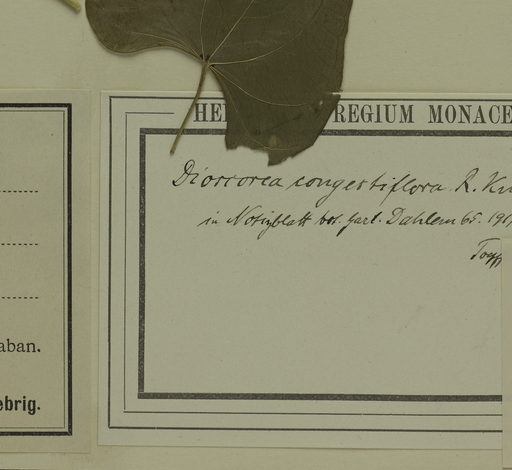 HE REGIUM MONACE
Dioscorea congestiflora R. Kn
in Notizblatt bot. Gart. Dahlem 65. 191
aban.
ebrig.